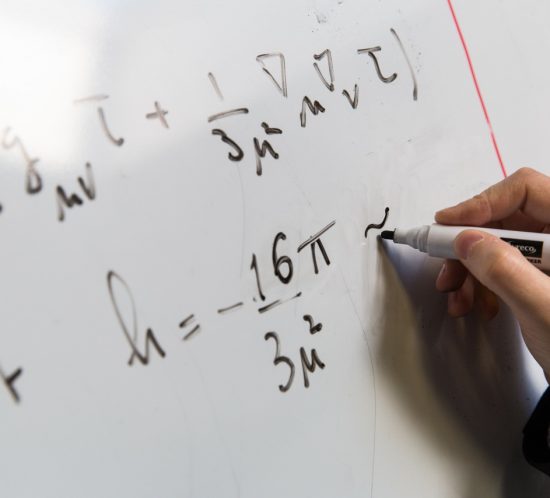 g_{μν} τ + 1/3μ² ∇_μ ∇_ν τ)
h = - 16π/3μ² ~